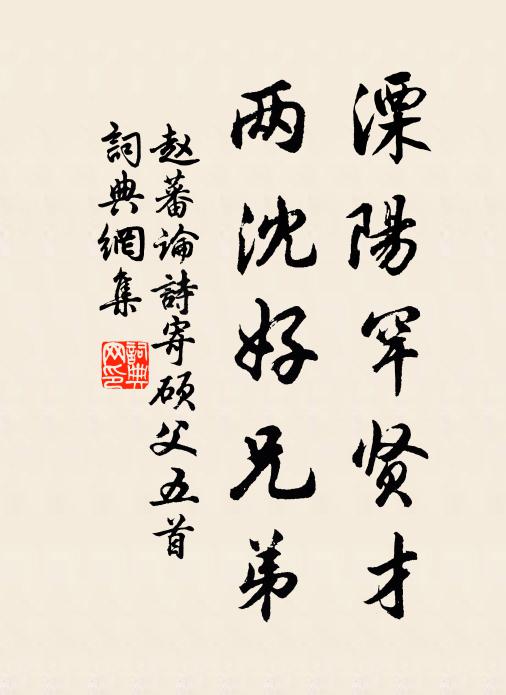 溧陽罕贤才
两沈好兄弟
赵蕃论詩寄硕父五首
詞典網集
詞典网印